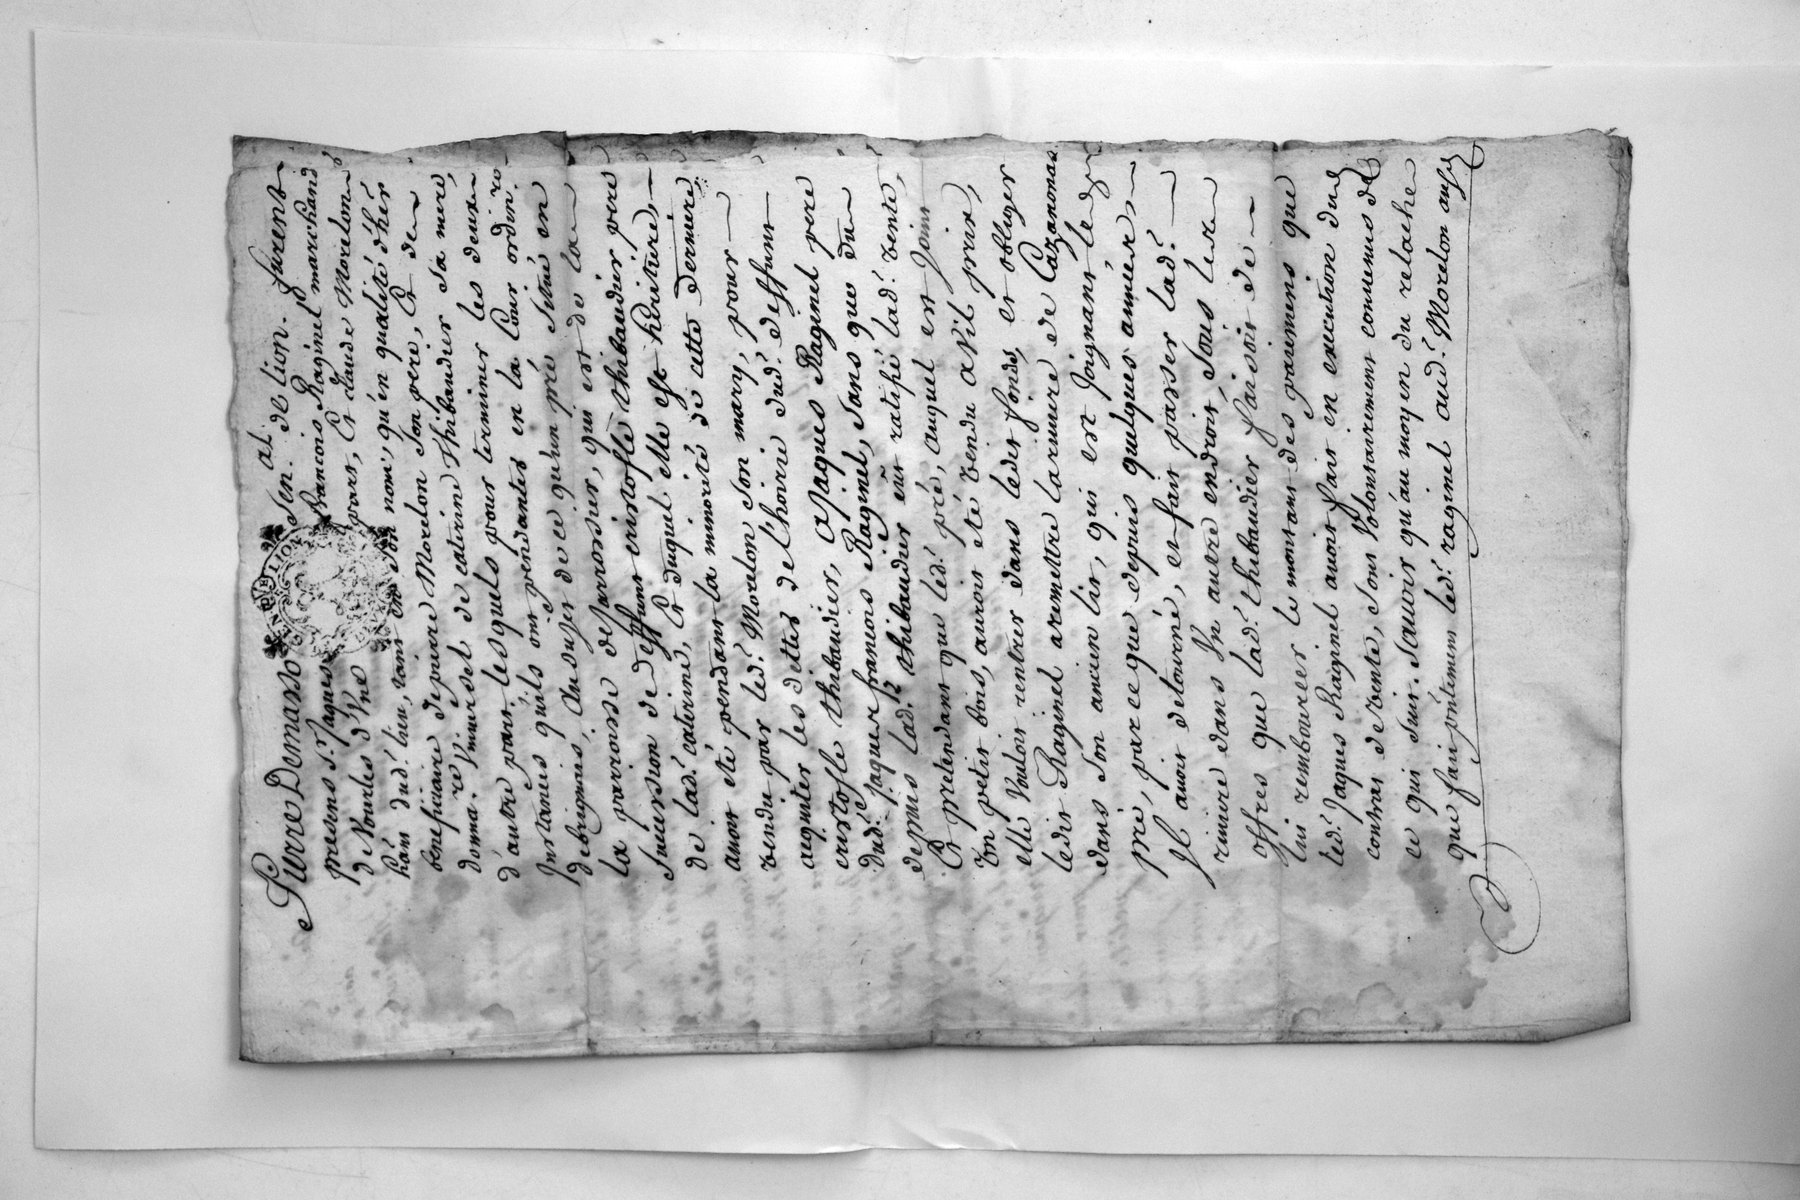 Surre Demasso Sen. al. de lion. furent
presens Sr. Jaques francois Raginel marchand
de Vourles d'Vne part, Et claude Morelon
han dud. lieu, tant en son nom, qu'en qualité d'her
beneficiaire de pierre Morelon son pere, Et de
donna. re V. mursel de catrine Thibaudier sa mere,
d'autre part. lesquels pour terminer les deux
Instances qu'ils ont pendantes en la Cour ordin.re
de brignais, Au sujet de ce qu'un pré situé en
la parroisse de Jarrossur, qui est de la
Succession de deffunt cristofle thibaudier pere
de lad. catirine, Et duquel elle est heritiere,
auoit eté pendant la minorité de cette derniere
vendu par led. Morelon son mary, pour
aquiter les dettes de l'hoirie dud. deffunt
cristofle thibaudier, a Jaques Raginel pere
dud. Jaques francois Raginel, sans que du
depuis lad. thibaudier eut ratifié lad. vente,
Et pretendant que led. pré, auquel est joint
vn petit bois, auroit eté vendu a Vil prix,
elle Vouloit rentrer dans ledit fonds, et obliger
ledit Raginel a remettre la riuiere de Cazanona
dans son ancien lit, qui est Joignant led.
pré, parce que depuis quelques années,
Il auoit detourné, et fait passer lad.
riuiere dans Vn autre endroit, sous les
offres que lad. thibaudier faisoit de
lui rembourcer le montant des paiemens que
led. Jaques Raginel auoit fait en execution dud.
contrat de vente, sont Volontairement conuenus de
ce qui suit. Sçauoir qu'au moyen du relache
que fait pntement led. raginel aud. Morelon aud.